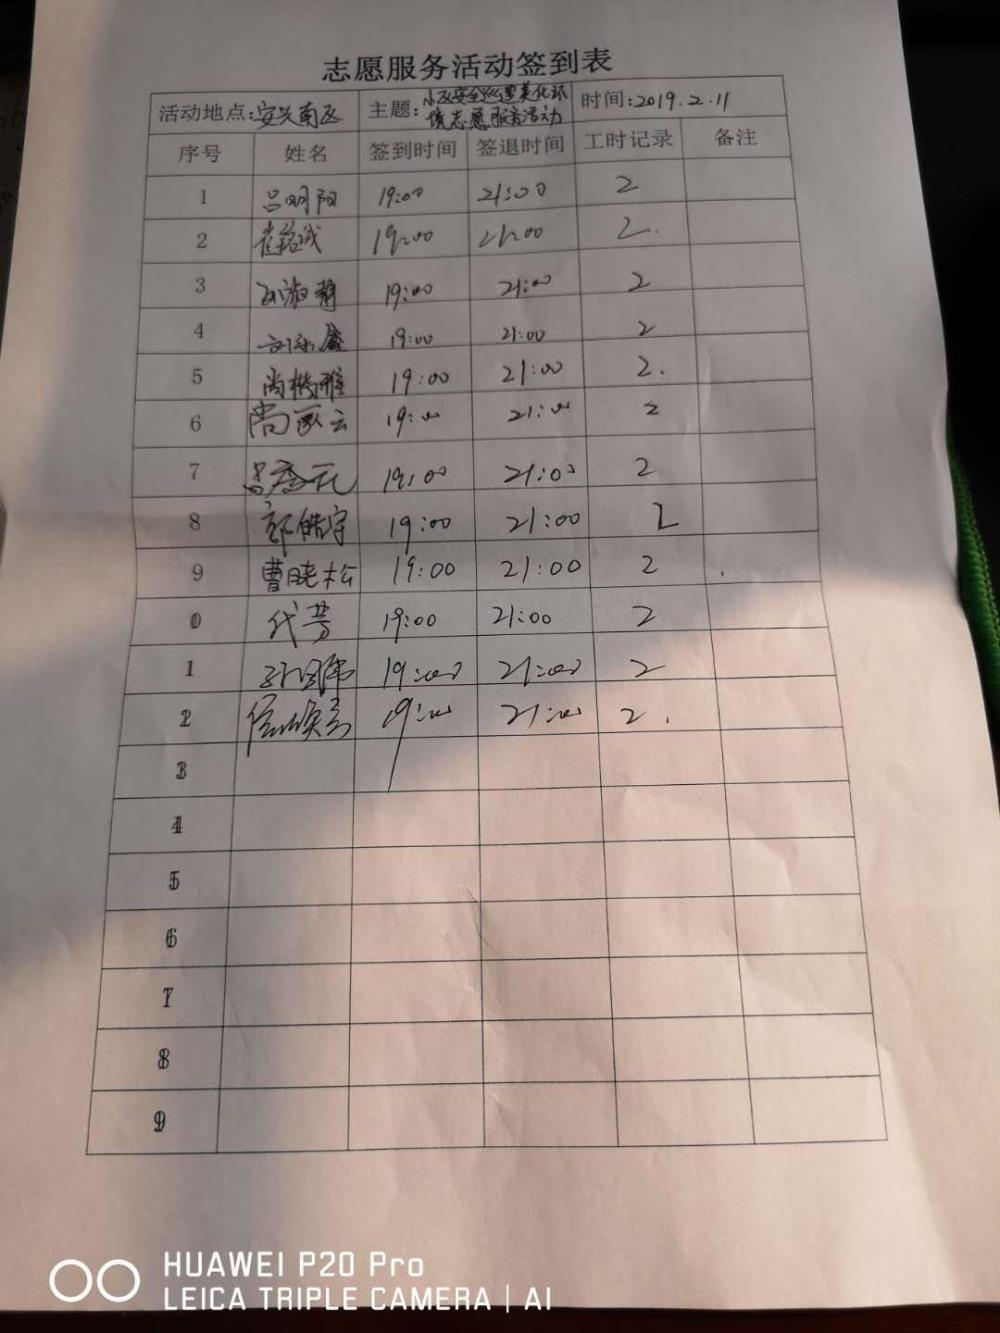 志愿服务活动签到表
活动地点:安兴南区 主题:小区安全巡逻美化环境志愿服务活动 时间:2019.2.11
序号 姓名 签到时间 签退时间 工时记录 备注
1 吕明阳 19:00 21:00 2
2 崔铭诚 19:00 21:00 2.
3 孙淑静 19:00 21:00 2
4 19:00 21:00 2
5 尚雅 19:00 21:00 2.
6 尚云 19:00 21:00 2
7 吕 19:00 21:00 2
8 郭皓宇 19:00 21:00 2
9 曹晓松 19:00 21:00 2
0 代芳 19:00 21:00 2
1 孙国伟 19:00 21:00 2
2 19:00 21:00 2.
3
4
5
6
7
8
9
HUAWEI P20 Pro
LEICA TRIPLE CAMERA | AI